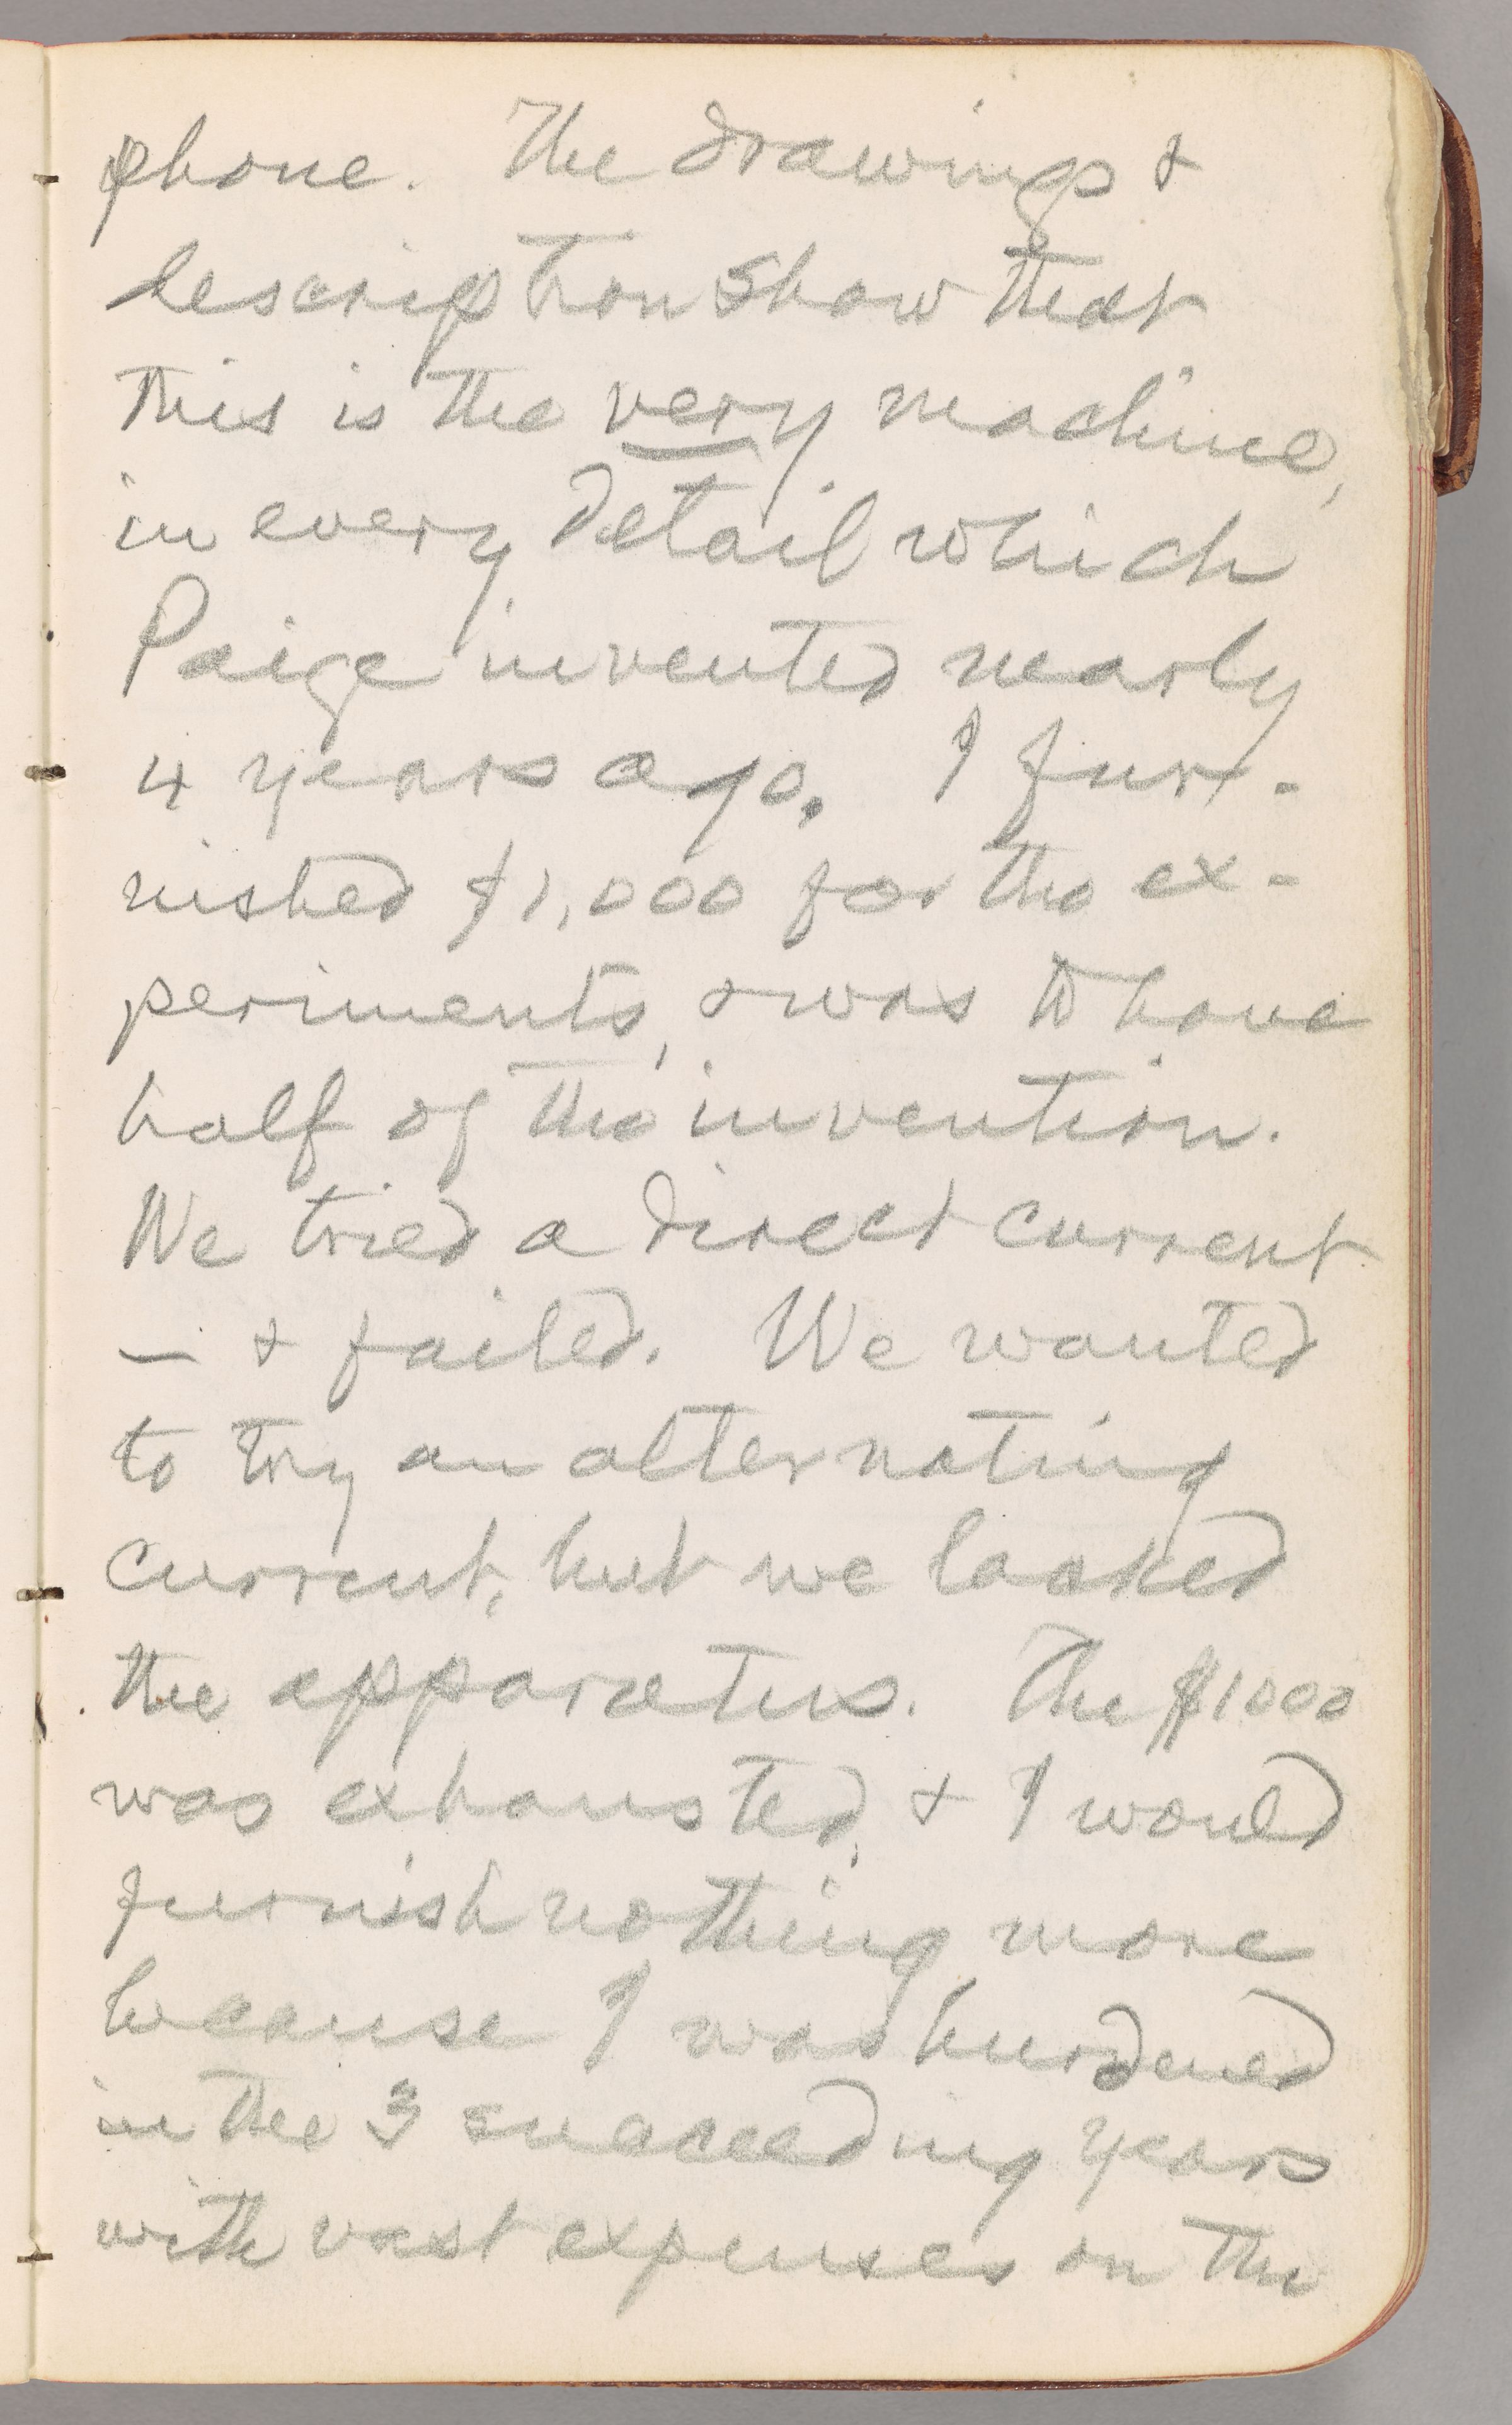 phone. The drawings &
description show that
this is the very machine,
in every detail which
Paige invented nearly
4 years ago. I fur-
nished $1,000 for the ex-
periments, & was to have
half of the invention.
We tried a direct current
— & failed. We wanted
to try an alternating
current, but we lacked
the apparatus. The $1000
was exhausted, & I would
furnish nothing more
because I was burdened
in the 3 succeeding years
with vast expenses on the